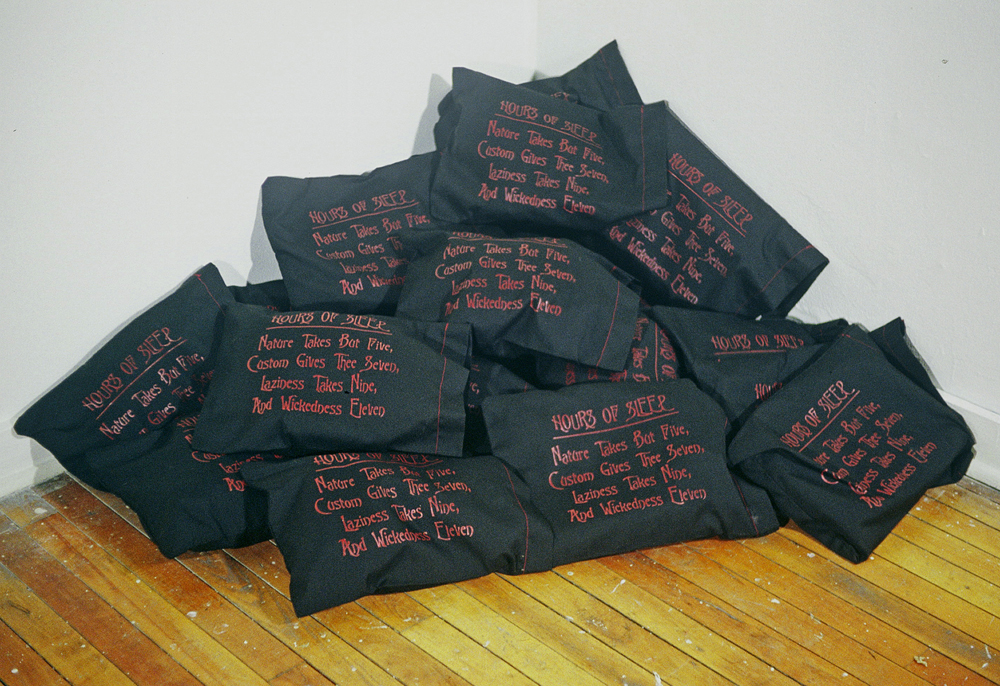 HOURS OF SLEEP
Nature Takes But Five,
Custom Gives Thee Seven,
Laziness Takes Nine,
And Wickedness Eleven
HOURS OF SLEEP
Takes But Five,
Gives Thee Seven,
Laziness Takes Nine,
And Wickedness Eleven
HOURS OF SLEEP
Nature Takes But Five,
Custom Gives Thee
Laziness Takes
And
HOURS OF SLEEP
Nature Takes But Five,
Custom Gives Thee Seven,
Laziness Takes Nine,
And Wickedness Eleven
HOURS OF SLEEP
Nature Takes But Five,
Gives Thee
HOURS OF SLEEP
Nature Takes But Five,
Custom Gives Thee Seven,
Laziness Takes Nine,
And Wickedness Eleven
HOURS OF SLEEP
HOURS
HOURS OF SLEEP
Takes But Five,
Gives Thee Seven,
Laziness Takes Nine,
And Wickedness Eleven
HOURS OF SLEEP
Nature Takes But Five,
Custom Gives Thee Seven,
Laziness Takes Nine,
And Wickedness Eleven
HOURS OF SLEEP
Nature Takes But Five,
Custom Gives Thee Seven,
Laziness Takes Nine,
And Wickedness Eleven